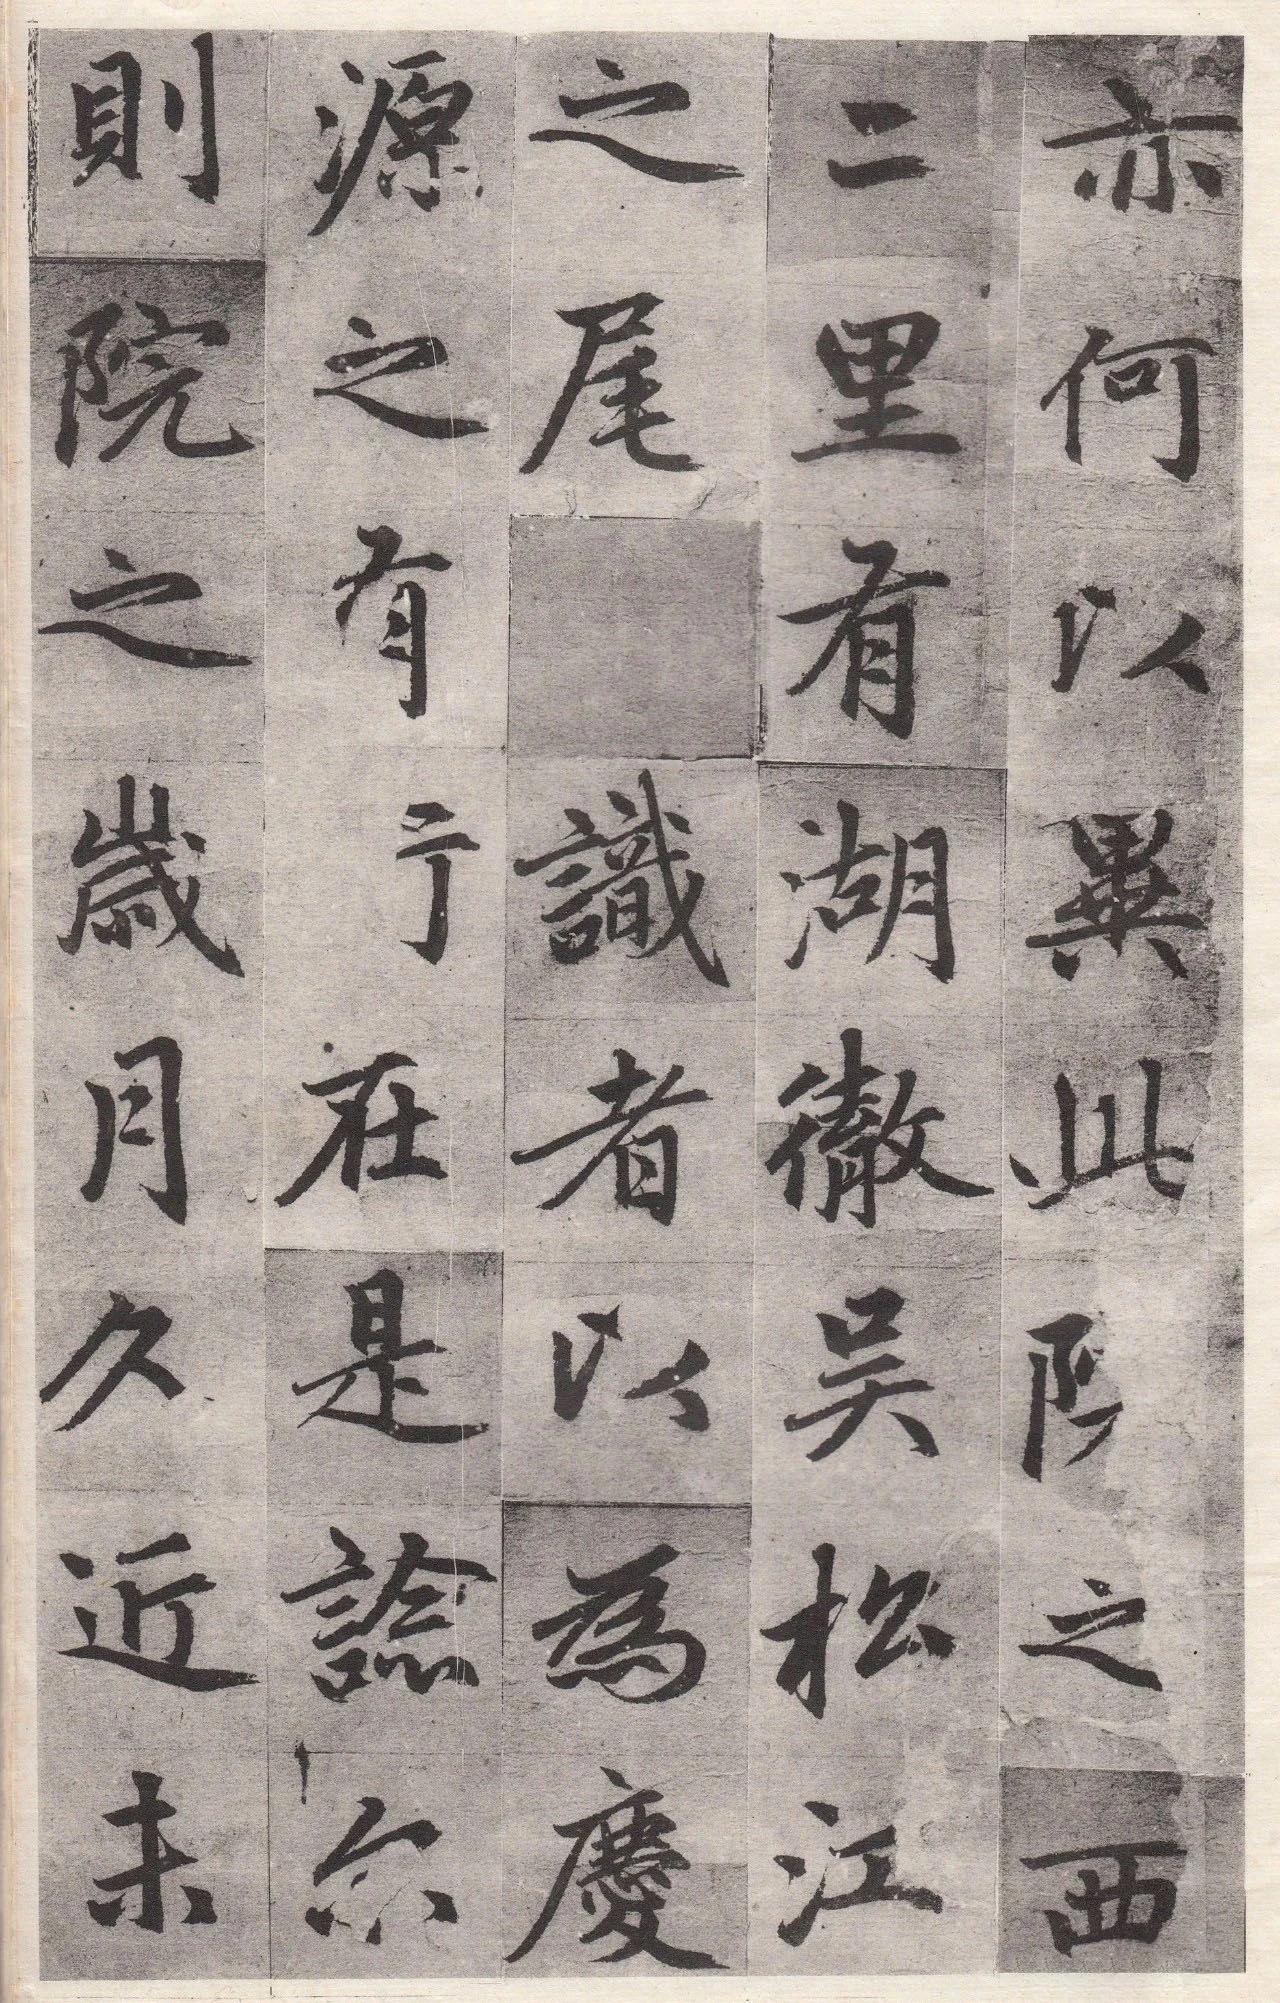 亦何以異此之西
二里有湖徹吴松江
之尾識者以為慶
源之有在是諗尔
則院之歲月久近未